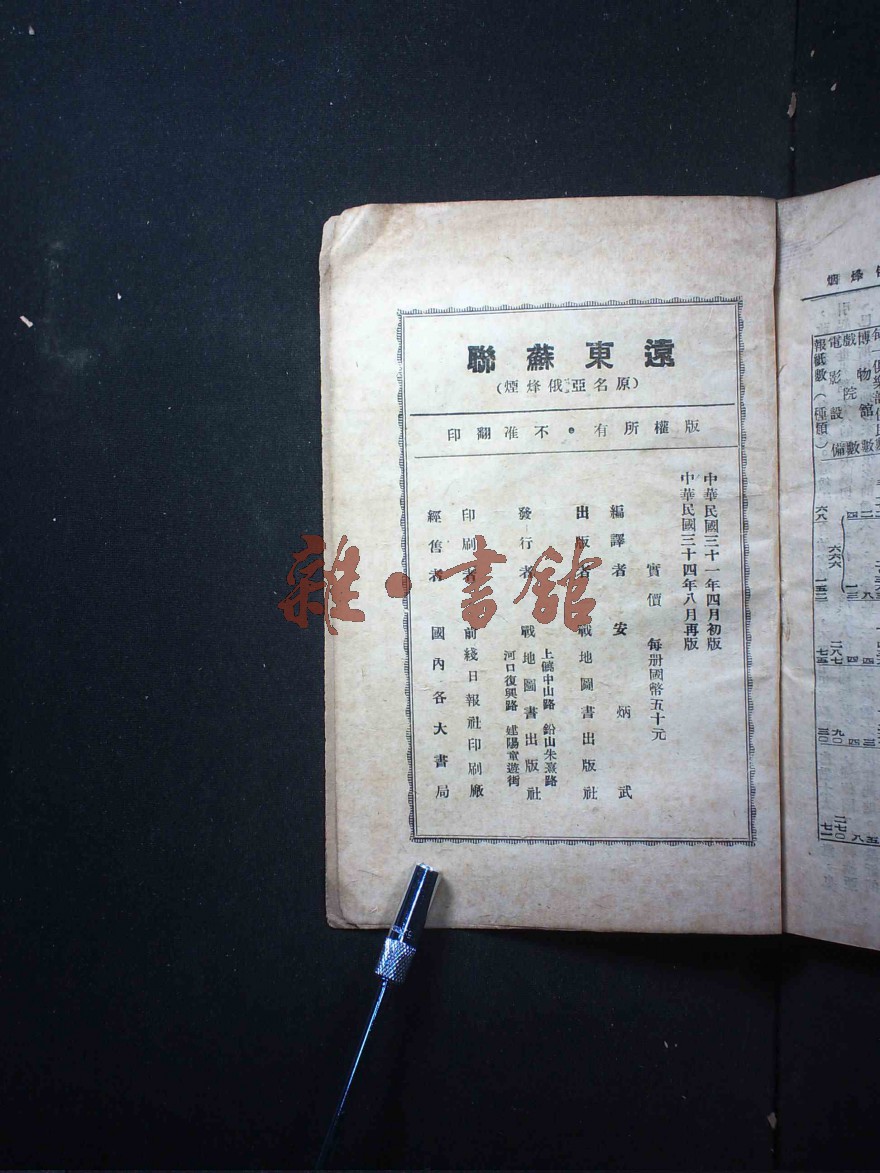 遠東蘇聯
(原名亞俄烽煙)
版權所有•不准翻印
中華民國三十一年四月初版
中華民國三十四年八月再版
實價 每册國幣五十元
編譯者 安炳武
出版者 戰地圖書出版社
上饒中山路 鉛山朱熹路
發行者 戰地圖書出版社
河口復興路 建陽童遊街
印刷者 前綫日報社印刷廠
經售者 國內各大書局
雜·書館
烽烟
博物館數
戲院數
電影設備
報紙數(種類)